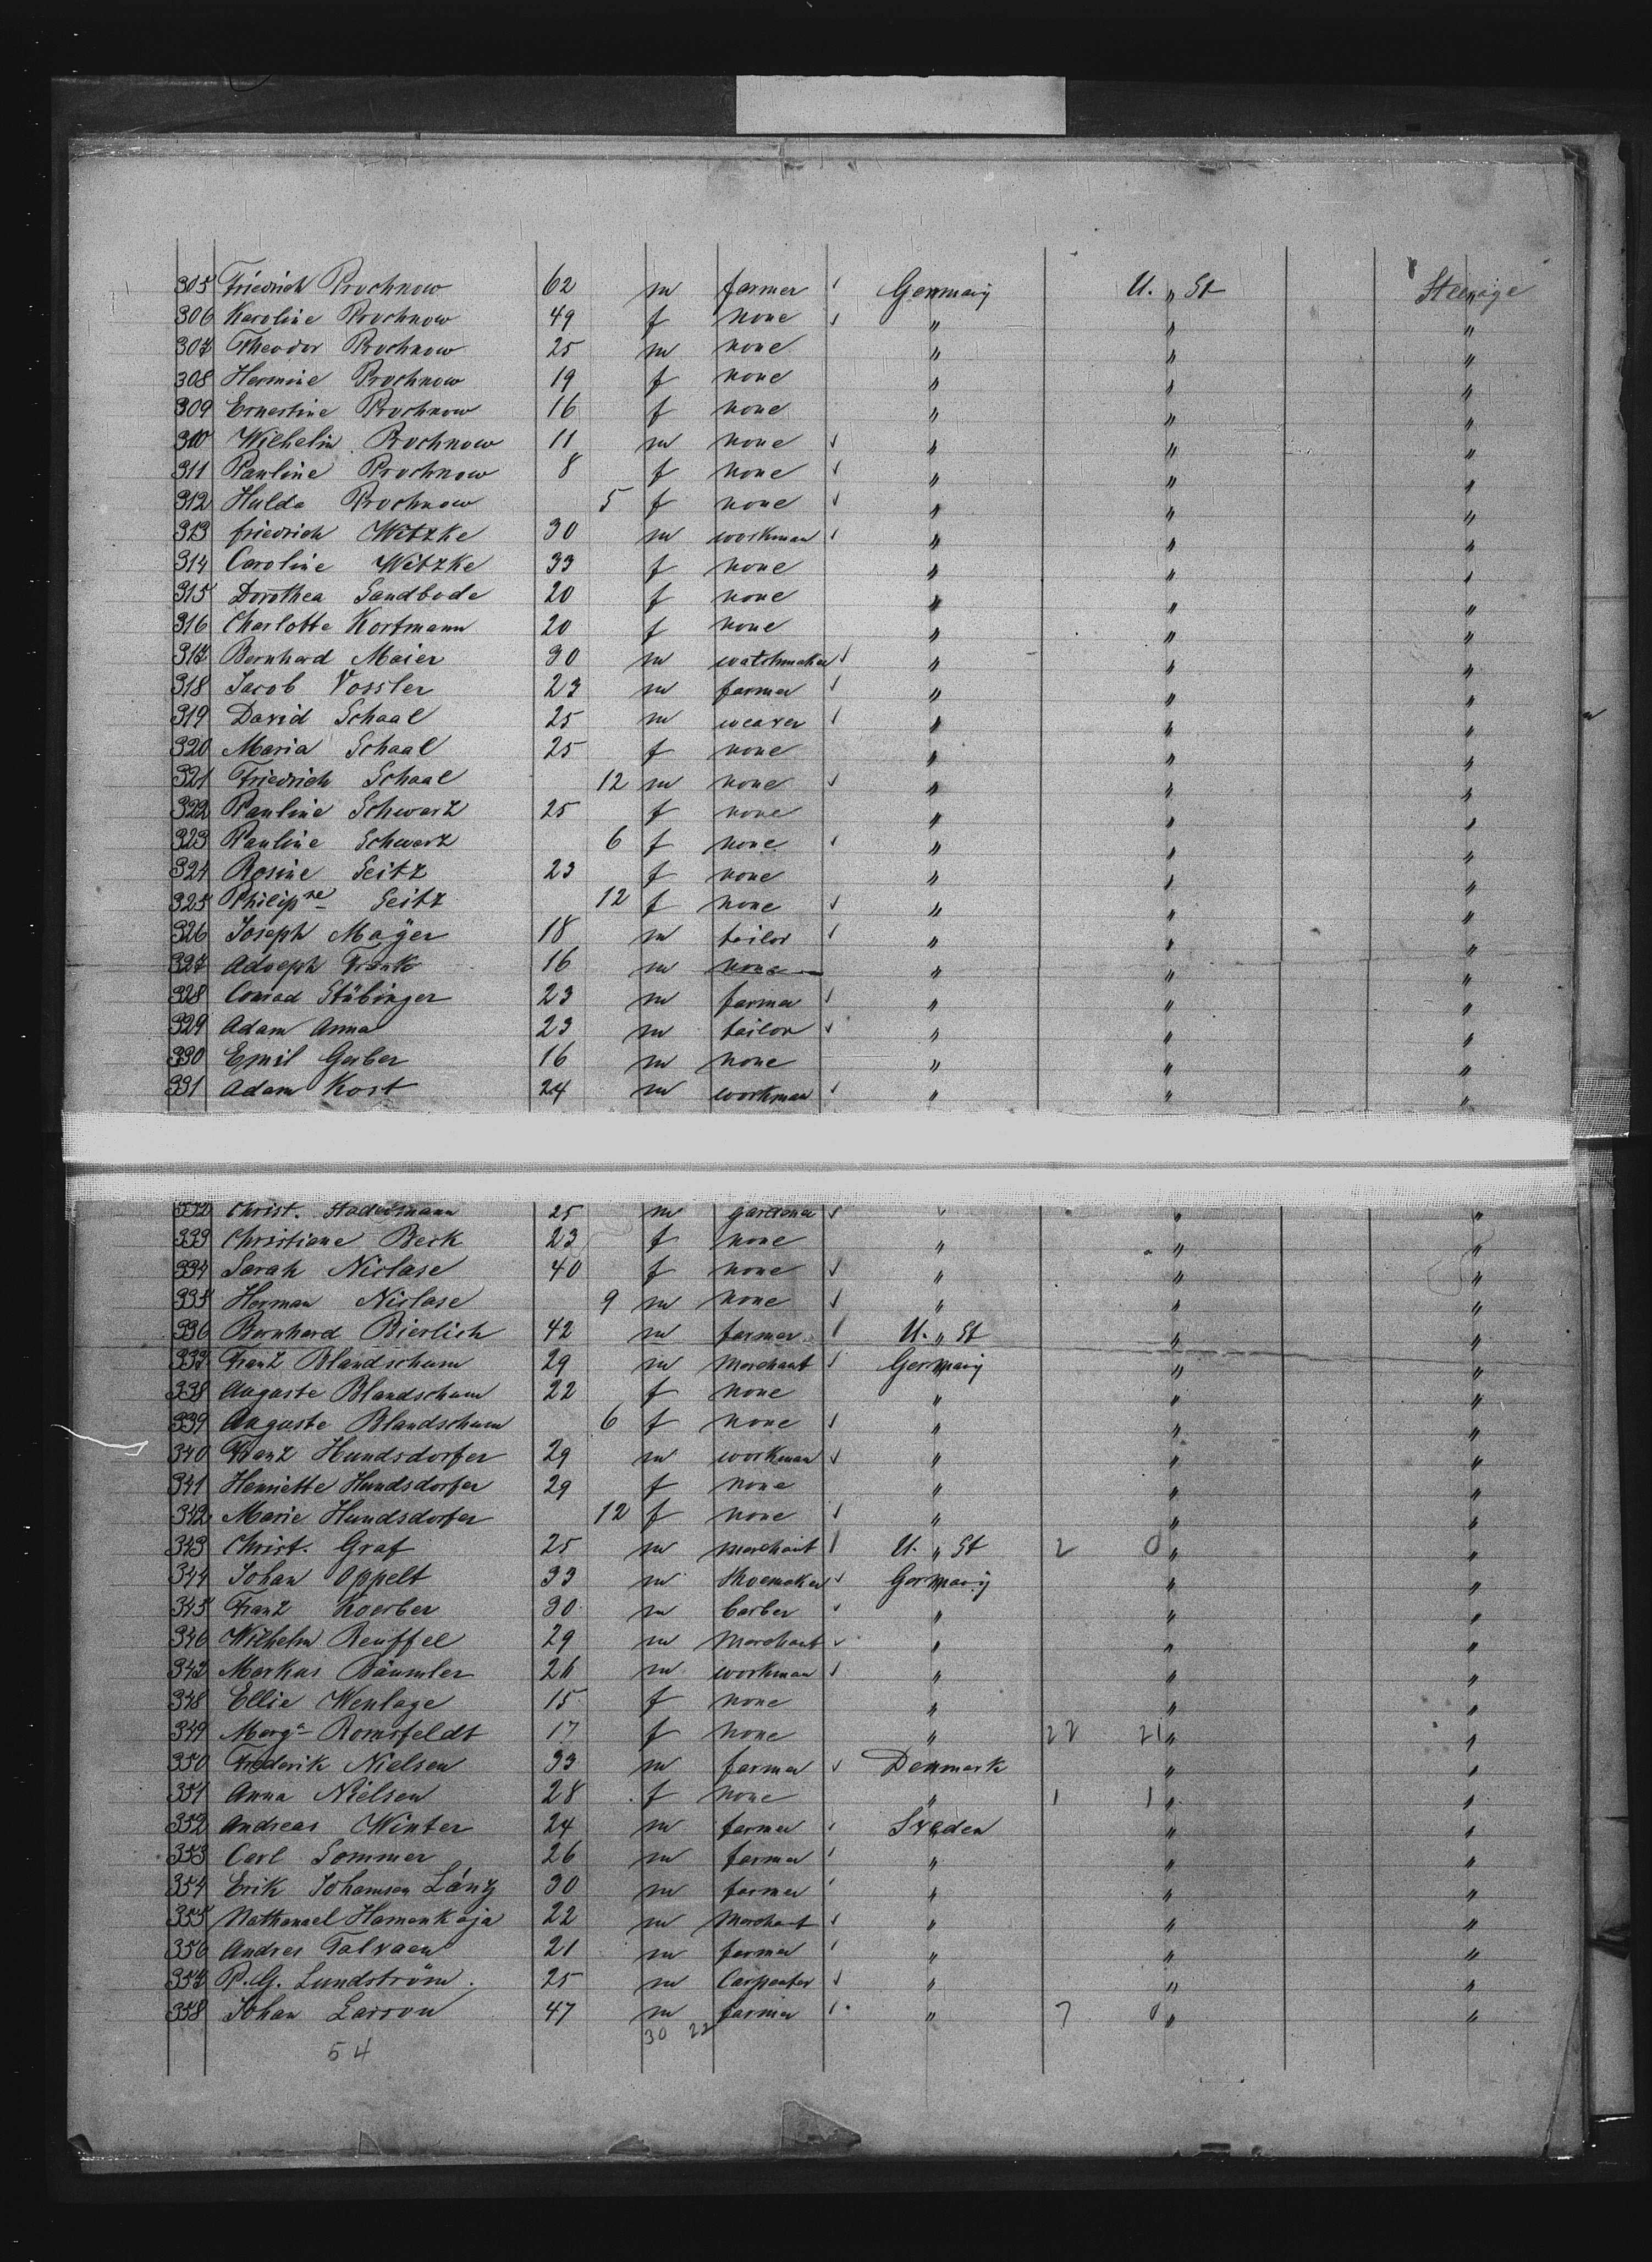 305 Friedrich Prochnow 62 m farmer ✓ Germany U. " St Steerage
306 Karoline Prochnow 49 f none ✓ " " "
307 Theodor Prochnow 25 m none " " "
308 Hermine Prochnow 19 f none " " "
309 Ernestine Prochnow 16 f none " " "
310 Wilhelm Prochnow 11 m none ✓ " " "
311 Pauline Prochnow 8 f none ✓ " " "
312 Hulda Prochnow 5 f none ✓ " " "
313 friedrich Witzke 30 m workman ✓ " " "
314 Caroline Witzke 33 f none " " "
315 Dorothea Sandbode 20 f none " " "
316 Charlotte Kortmann 20 f none " " "
317 Bernhard Maier 30 m watchmaker ✓ " " "
318 Jacob Vossler 23 m farmer ✓ " " "
319 David Schaal 25 m weaver ✓ " " "
320 Maria Schaal 25 f none " " "
321 Friedrich Schaal 12 m none ✓ " " "
322 Pauline Schwarz 25 f none " " "
323 Pauline Schwarz 6 f none ✓ " " "
324 Rosine Seitz 23 f none " " "
325 Philipne Seitz 12 f none ✓ " " "
326 Joseph Mayer 18 m tailor ✓ " " "
327 Adolph Frank 16 m none " " "
328 Conrad Stübinger 23 m farmer ✓ " " "
329 Adam Anna 23 m tailor ✓ " " "
330 Emil Gerber 16 m none " " "
331 Adam Kost 24 m workman ✓ " " "
332 Christ. Stadermann 25 m gardener ✓ " " "
333 Christiane Beck 23 f none " " "
334 Sarah Niclase 40 f none ✓ " " "
335 Herman Niclase 9 m none ✓ " " "
336 Bernhard Bierlich 42 m farmer ✓ U. " St " "
337 Franz Blandschum 29 m merchant ✓ Germany " "
338 Auguste Blandschum 22 f none " " "
339 Auguste Blandschum 6 f none ✓ " " "
340 Franz Hundsdorfer 29 m workman ✓ " " "
341 Henriette Hundsdorfer 29 f none " " "
342 Marie Hundsdorfer 12 f none ✓ " " "
343 Christ. Graf 25 m merchant ✓ U. " St 2 0 " "
344 Johan Oppelt 33 m Shoemaker ✓ Germany " "
345 Franz Koerber 30 m barber ✓ " " "
346 Wilhelm Reuffel 29 m Merchant ✓ " " "
347 Markus Bäumler 26 m workman ✓ " " "
348 Ellie Wenlage 15 f none " " "
349 Marga Romsfeldt 17 f none " 22 21 " "
350 Frederik Nielsen 33 m farmer ✓ Denmark " "
351 Anna Nielsen 28 f none " 1 1 " "
352 Andreas Winter 24 m farmer ✓ Sveden " "
353 Carl Sommer 26 m farmer ✓ " " "
354 Erik Johansen Láng 30 m farmer ✓ " " "
355 Nathanael Hamenkaja 22 m Merchant ✓ " " "
356 Andres Talvaen 21 m farmer ✓ " " "
357 P. G. Lundström. 25 m Carpenter ✓ " " "
358 Johan Larson 47 m farmer ✓ " 7 0 " "
54 30 22